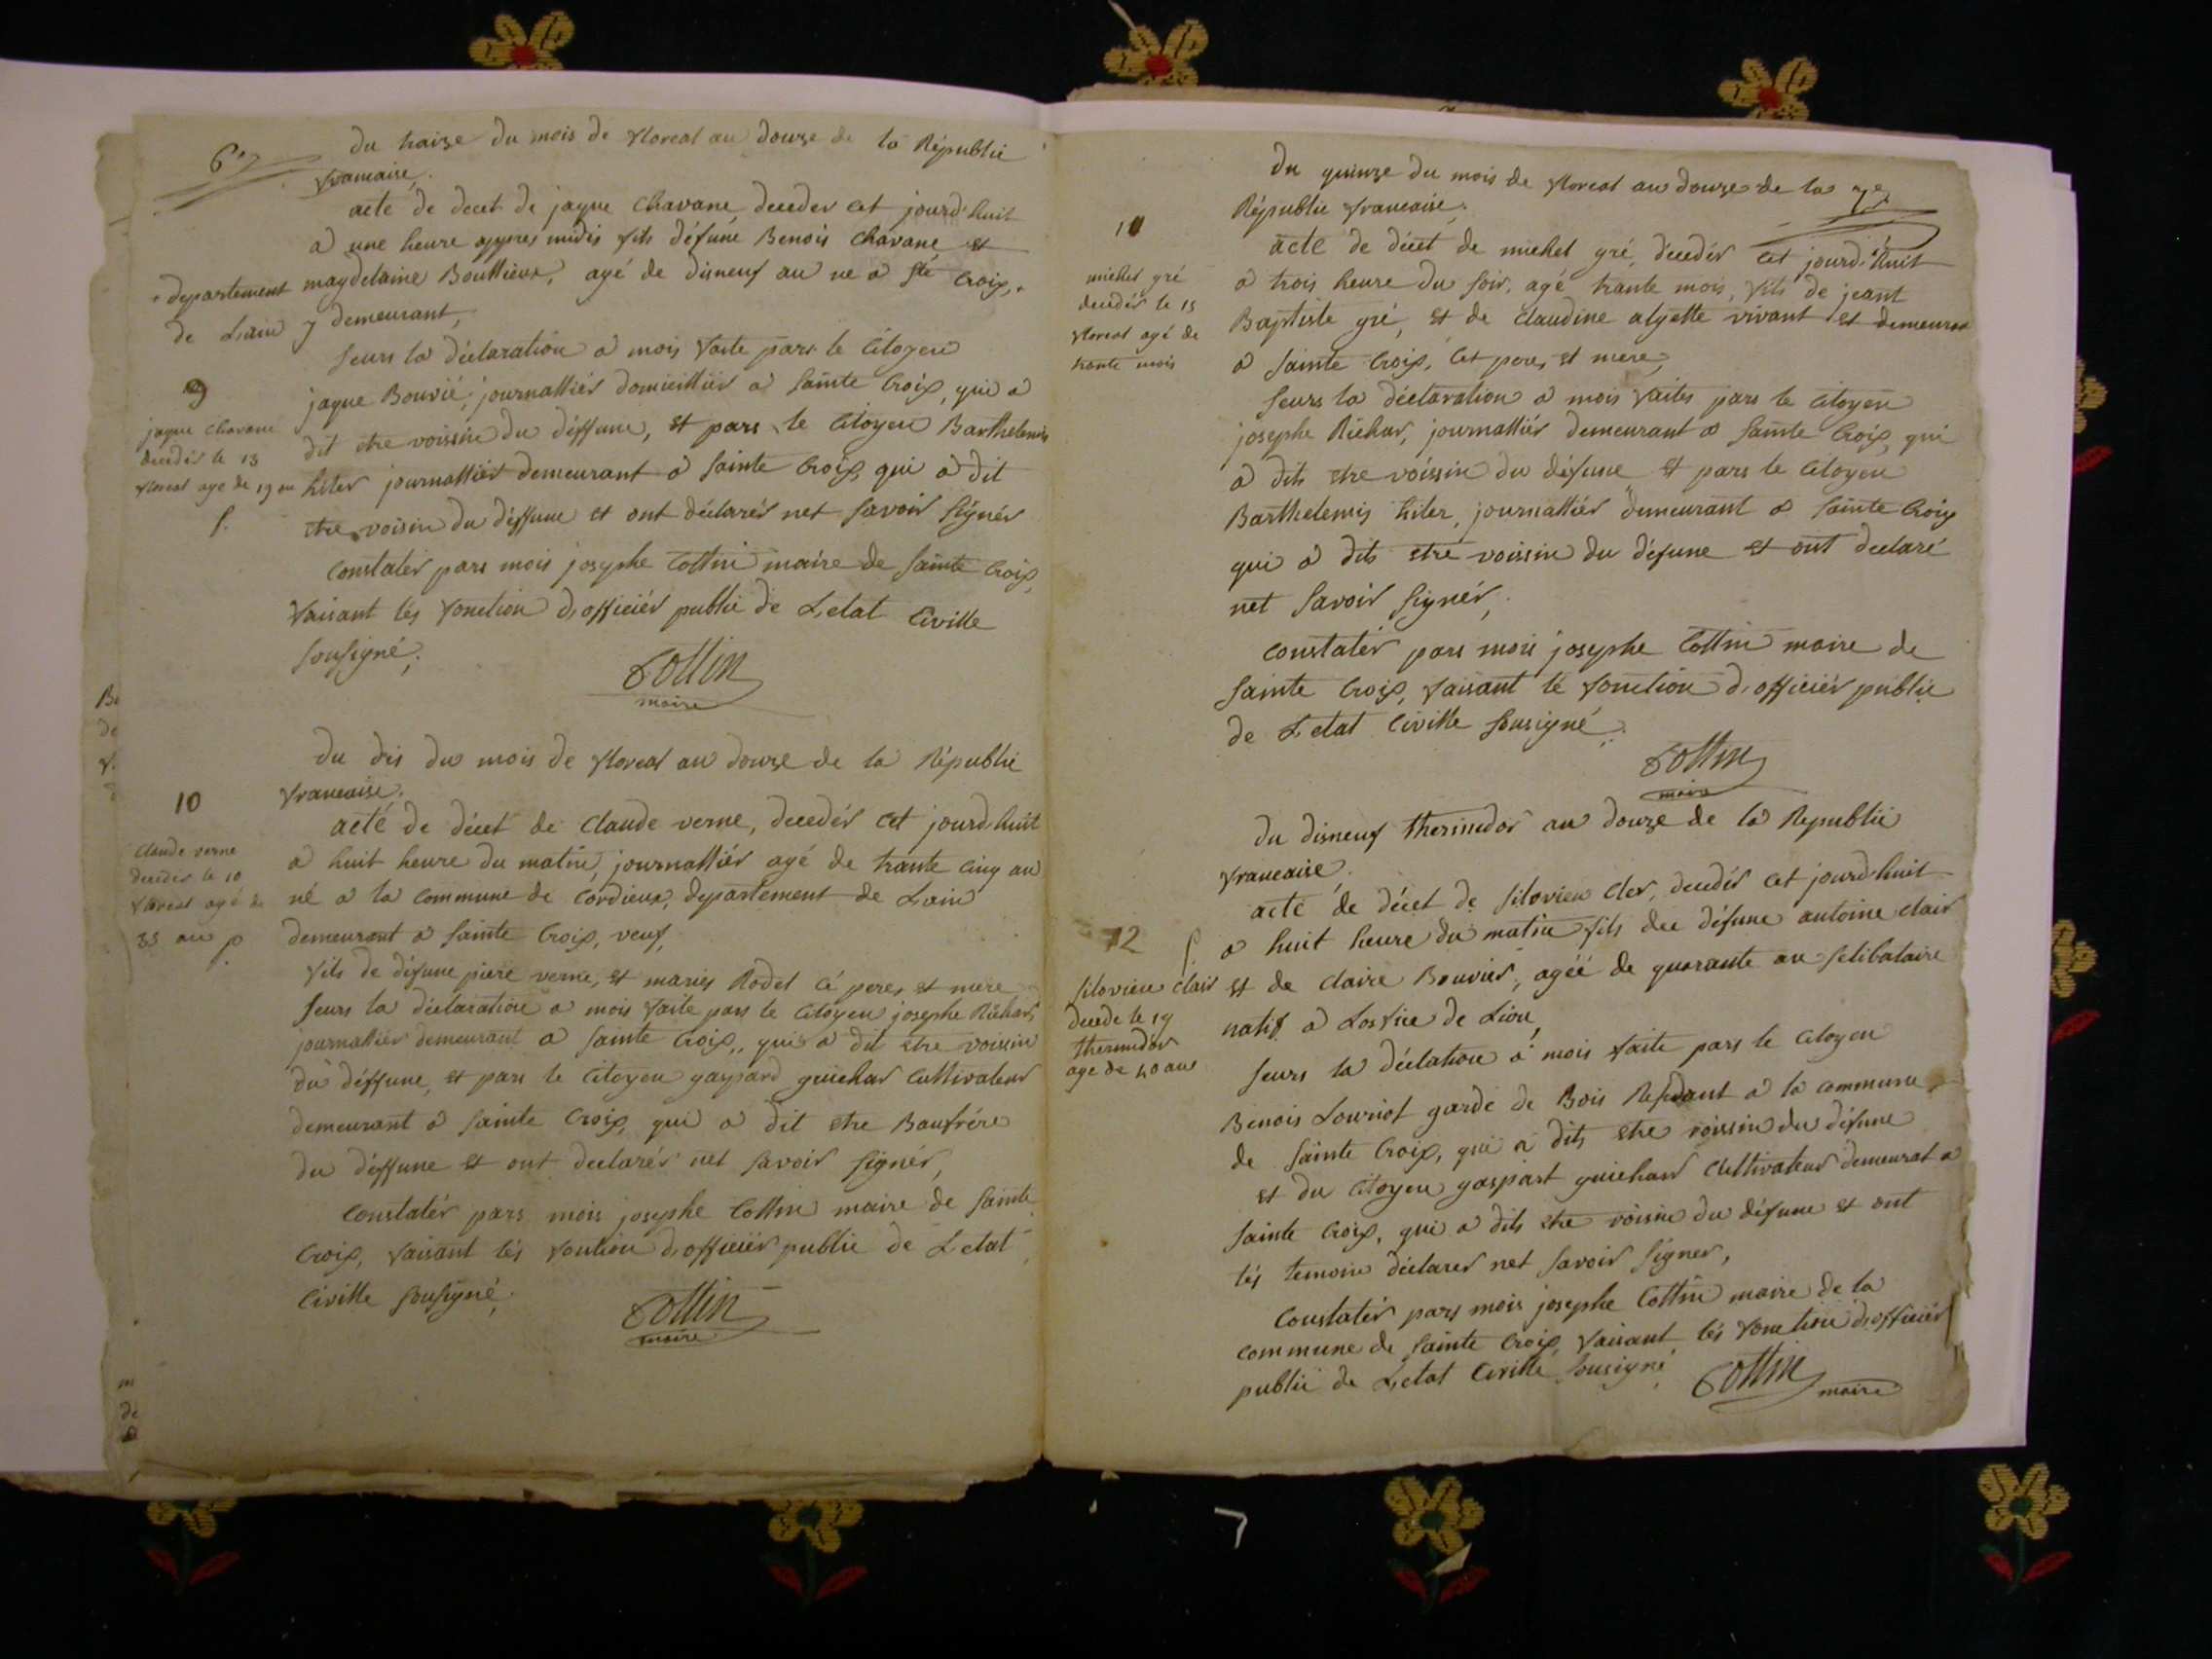 6e
du traize du mois de floreal an douze de la Républic
francaise.
acte de decet de jaque Chavane, deceder cet jourd'huit
a une heure appres midis fils défune Benois Chavane et
magdelaine Bouttieux, agé de disneuf an ne a Ste Croix, +
+ departement
de Lain
y demeurant,
seurs la déclaration a mois faite pars le Citoyen
9
jaque Chavane
decedér le 13
floreal age de 19 an
f.
jaque Bouvié, journalliér domicilliér a sainte Croix, qui a
dit etre voissin du déffune, et pars le Citoyen Barthelemis
hiter journalliér demeurant a sainte Croix qui a dit
etre voisin du déffune et ont déclarér net savoir signér
Constatér pars mois josephe Cottin maire de sainte Croix,
faisant lés fonction d'officiér public de L'etat Civille
sousigné.
Cottin
maire
du dis du mois de floreal an douze de la Républic
francaise.
10
Claude verne
decedér le 10
floreal agé de
35 an p
acté de décet de Claude verne, decedér cet jourd'huit
a huit heure du matin, journalliér agé de trante cinq an
né a la Commune de Cordieux, departement de Lain
demeurant a sainte Croix, veuf,
fils de défune piere verne, et maries Rodet cé peres et mere
seurs la déclaration a mois faite pars le Citoyen josephe Richar,
journalliér demeurant a sainte Croix, qui a dit etre voissin
du déffune, et pars le Citoyen gaspard guichar Cultivateur
demeurant a sainte Croix, qui a dit etre Baufrére
du déffune et ont declarér net savoir signér,
Constatér pars mois josephe Cottin maire de sainte
Croix, faisant lés fontion d'officiér public de L'etat
Civille sousigné.
Cottin
maire
du quinze du mois de floreal an douze de la
7e
République francaise.
11
michel gré
decedér le 15
floreal agé de
trante mois
acte de décet de michel gré, decedér cet jourd'huit
a trois heure du soir, agé trante mois, fils de jeant
Baptiste gré, et de Claudine aljette vivant et demeurant
a sainte Croix, Cet peres et mere,
seurs la déclaration a mois faites pars le Citoyen
josephe Richar, journalliér demeurant a sainte Croix, qui
a dits etre voissin du défune et pars le Citoyen
Barthelemis hiter, journalliér demeurant a sainte Croix
qui a dits etre voissin du défune et ont declaré
net savoir signér,
constatér pars mois josephe Cottin maire de
sainte Croix, faisant le fonction d'officiér public
de L'etat Civille sousigné.
Cottin
maire
du disneuf thermidor an douze de la Republic
francaise.
12
f.
silovien Clair
decede le 19
thermidor
age de 40 ans
acté de décet de silovien Cler, decedér cet jourd'huit
a huit heure du matin fils deu défune antoine clair
et de Claire Bouvier, agéé de quarante an selibataire
natif a Losfice de Lion,
seurs la déclation a mois faite pars le Citoyen
Benois Louriot garde de Bois Residant a la commune
de sainte Croix, qui a dits etre voissin du défune
et du Citoyen gaspart guichard Cultivateur demeurat a
sainte Croix, qui a dits etre voisin du défune et ont
lés temoin déclarer net savoir signer,
Constatér pars mois josephe Cottin maire de la
commune de sainte Croix, faisant, lés fonction d'officiér
public de L'etat Civille sousigné
Cottin
maire